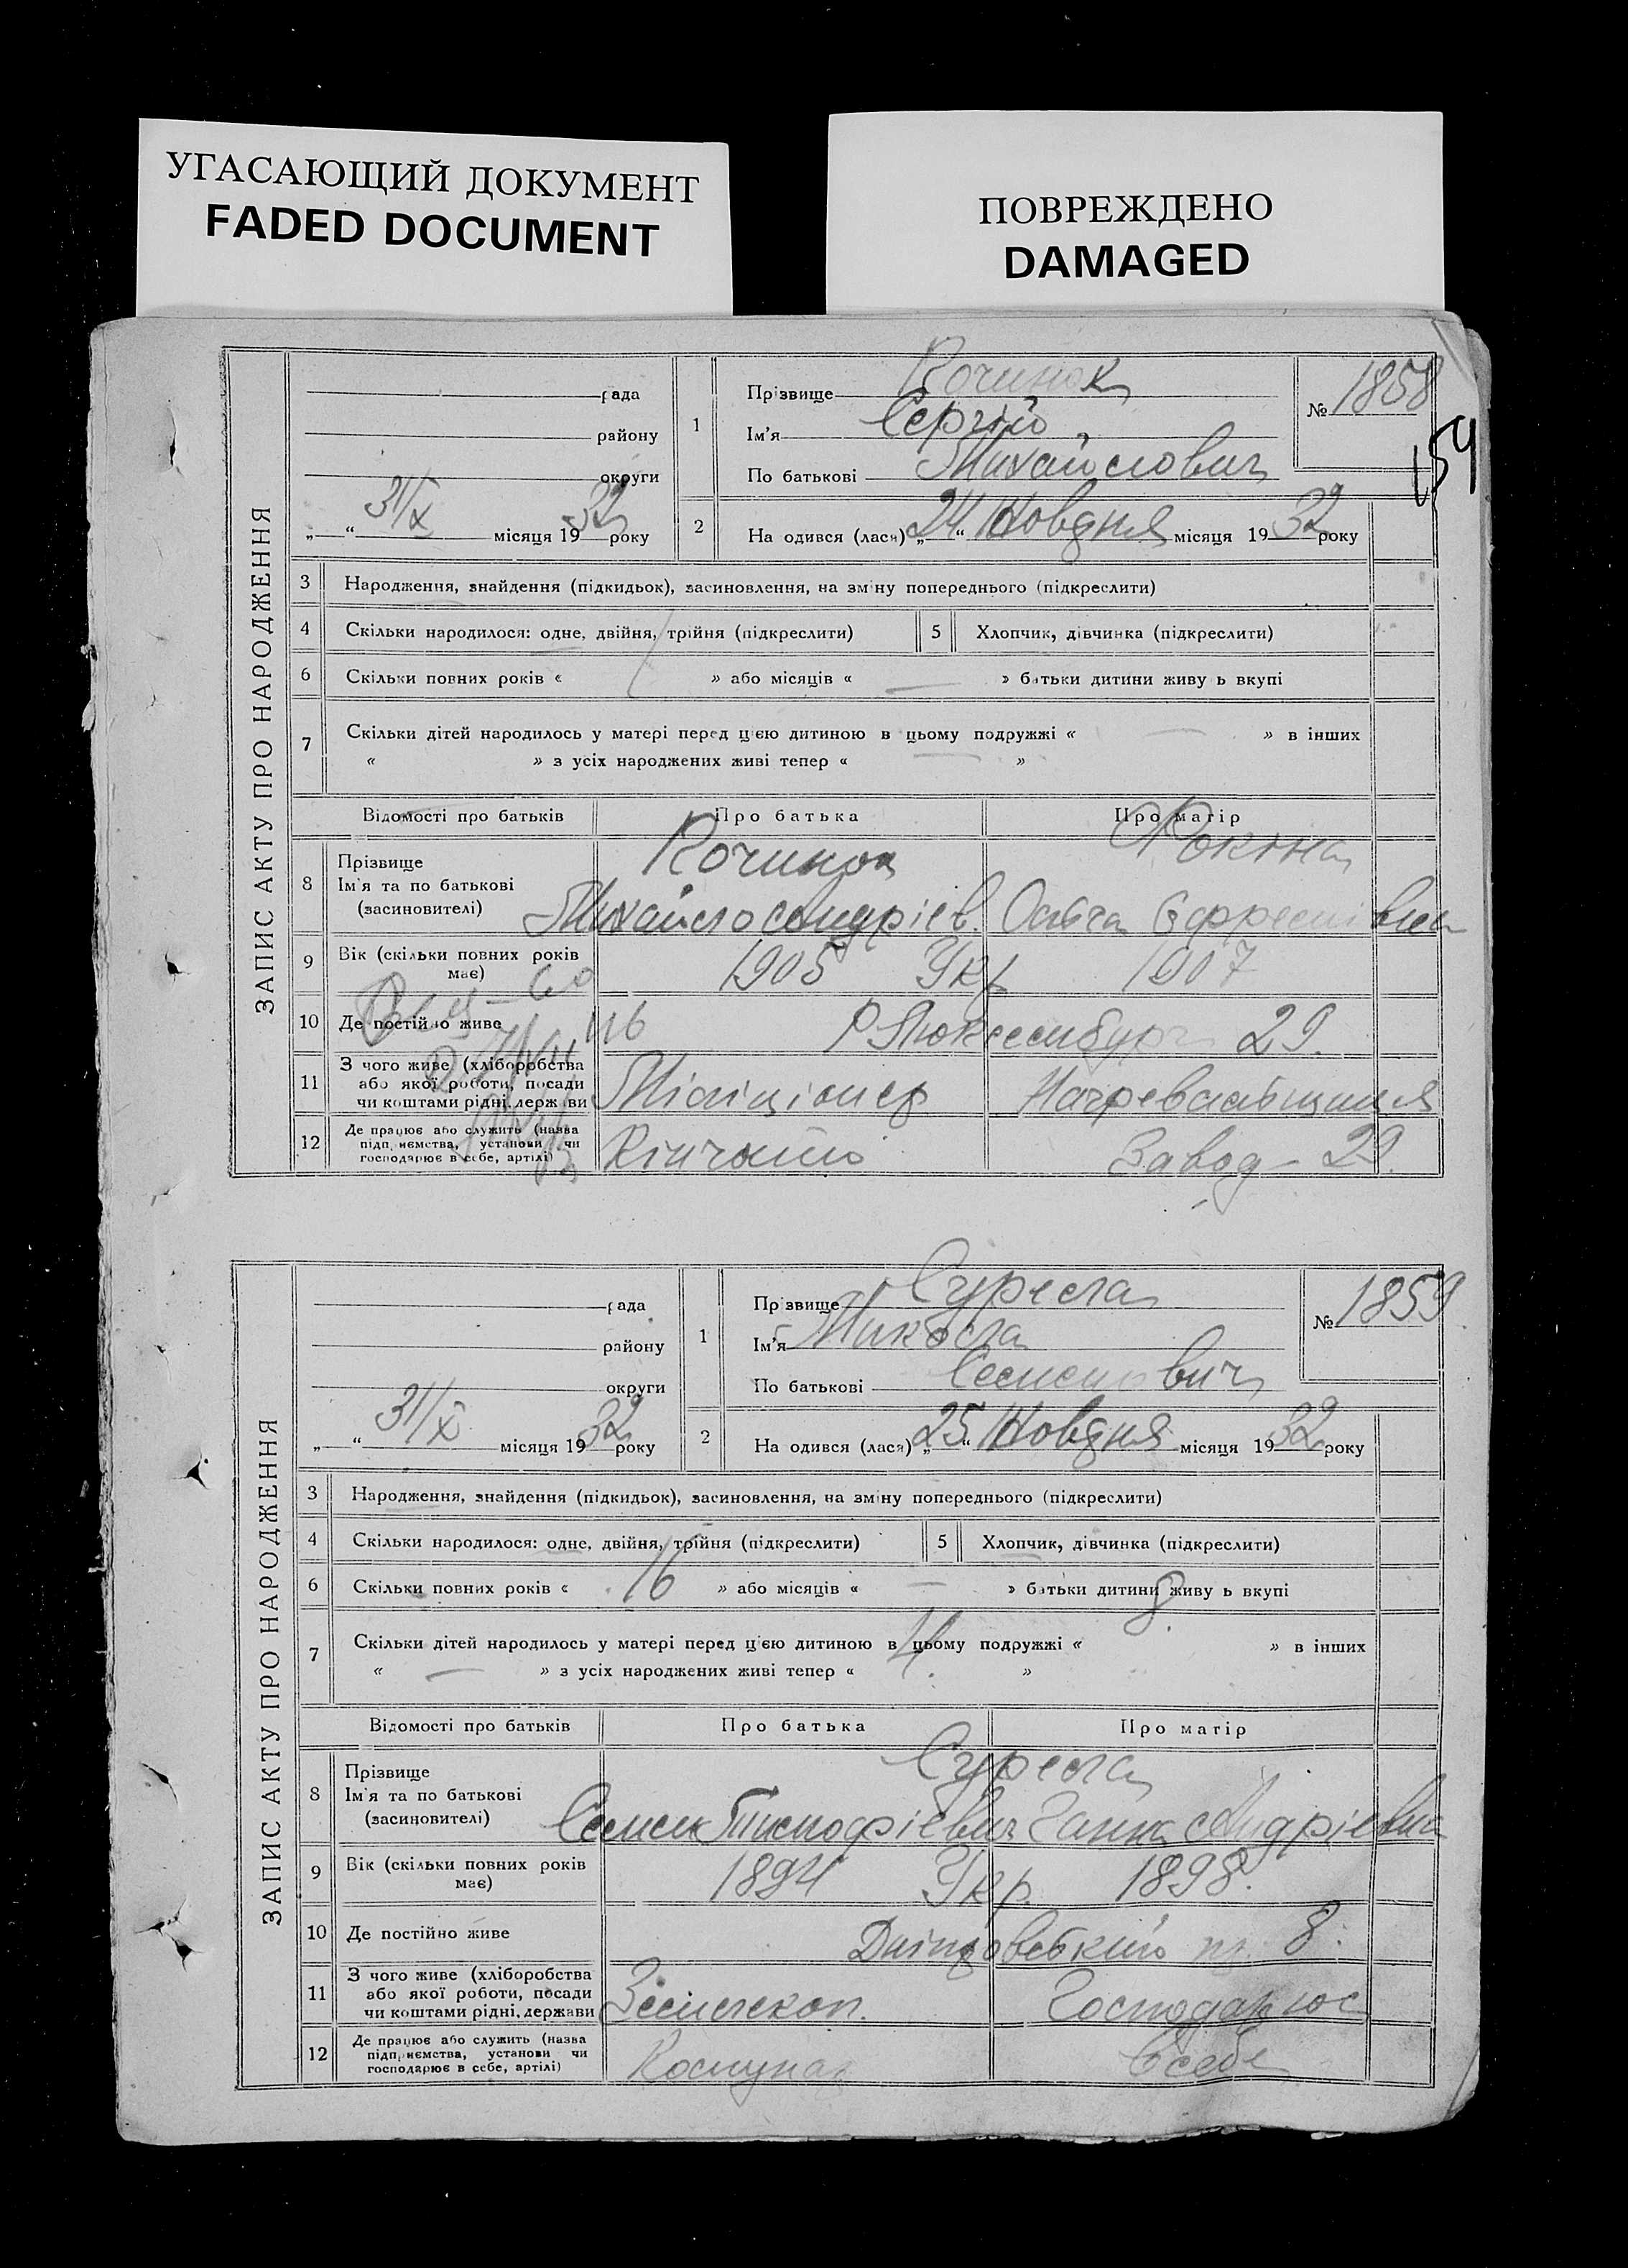 УГАСАЮЩИЙ ДОКУМЕНТ
FADED DOCUMENT
ПОВРЕЖДЕНО
DAMAGED
ЗАПИС АКТУ ПРО НАРОДЖЕННЯ
рада
району
округи
31/X місяця 1932 року
1
Прізвище Кочинок
Ім'я Сергій
По батькові Михайлович
№ 1858
159
2
На одився (лася) „24“ Жовдня місяця 1932 року
3 Народження, знайдення (підкидьок), засиновлення, на зміну попереднього (підкреслити)
4 Скільки народилося: одне, двійня, трійня (підкреслити) 5 Хлопчик, дівчинка (підкреслити)
6 Скільки повних років « » або місяців « — » батьки дитини живу ь вкупі
7 Скільки дітей народилось у матері перед цією дитиною в цьому подружжі « — » в інших
« » з усіх народжених живі тепер « — »
Відомості про батьків Про батька Про матір
8 Прізвище
Ім'я та по батькові
(засиновителі)
Кочинок
Михайло Андріев.
9 Вік (скільки повних років має) 1905 Укр 1907
10 Де постійно живе Р Люксембург 29.
11 З чого живе (хліборобства
або якої роботи, посади
чи коштами рідні, держави
Міліціонер Нагревальщиця
12 Де працює або служить (назва
підприємства, установи чи
господарює в себе, артілі)
Завод – 29.
ЗАПИС АКТУ ПРО НАРОДЖЕННЯ
рада
району
округи
31/X місяця 1932 року
1
Прізвище Сурела
Ім'я Микола
По батькові Семенович
№ 1859
2
На одився (лася) „25“ Жовдня місяця 1932 року
3 Народження, знайдення (підкидьок), засиновлення, на зміну попереднього (підкреслити)
4 Скільки народилося: одне, двійня, трійня (підкреслити) 5 Хлопчик, дівчинка (підкреслити)
6 Скільки повних років « 16 » або місяців « — » батьки дитини живу ь вкупі
7 Скільки дітей народилось у матері перед цією дитиною в цьому подружжі « 8. » в інших
« — » з усіх народжених живі тепер « 4. »
Відомості про батьків Про батька Про матір
8 Прізвище
Ім'я та по батькові
(засиновителі)
Сурела
Семен Тимофіевич Ганна Андріевна
9 Вік (скільки повних років має) 1894 Укр. 1898.
10 Де постійно живе Дніпровський 8.
11 З чого живе (хліборобства
або якої роботи, посади
чи коштами рідні, держави
Землекоп. Господарює
12 Де працює або служить (назва
підприємства, установи чи
господарює в себе, артілі)
В себе